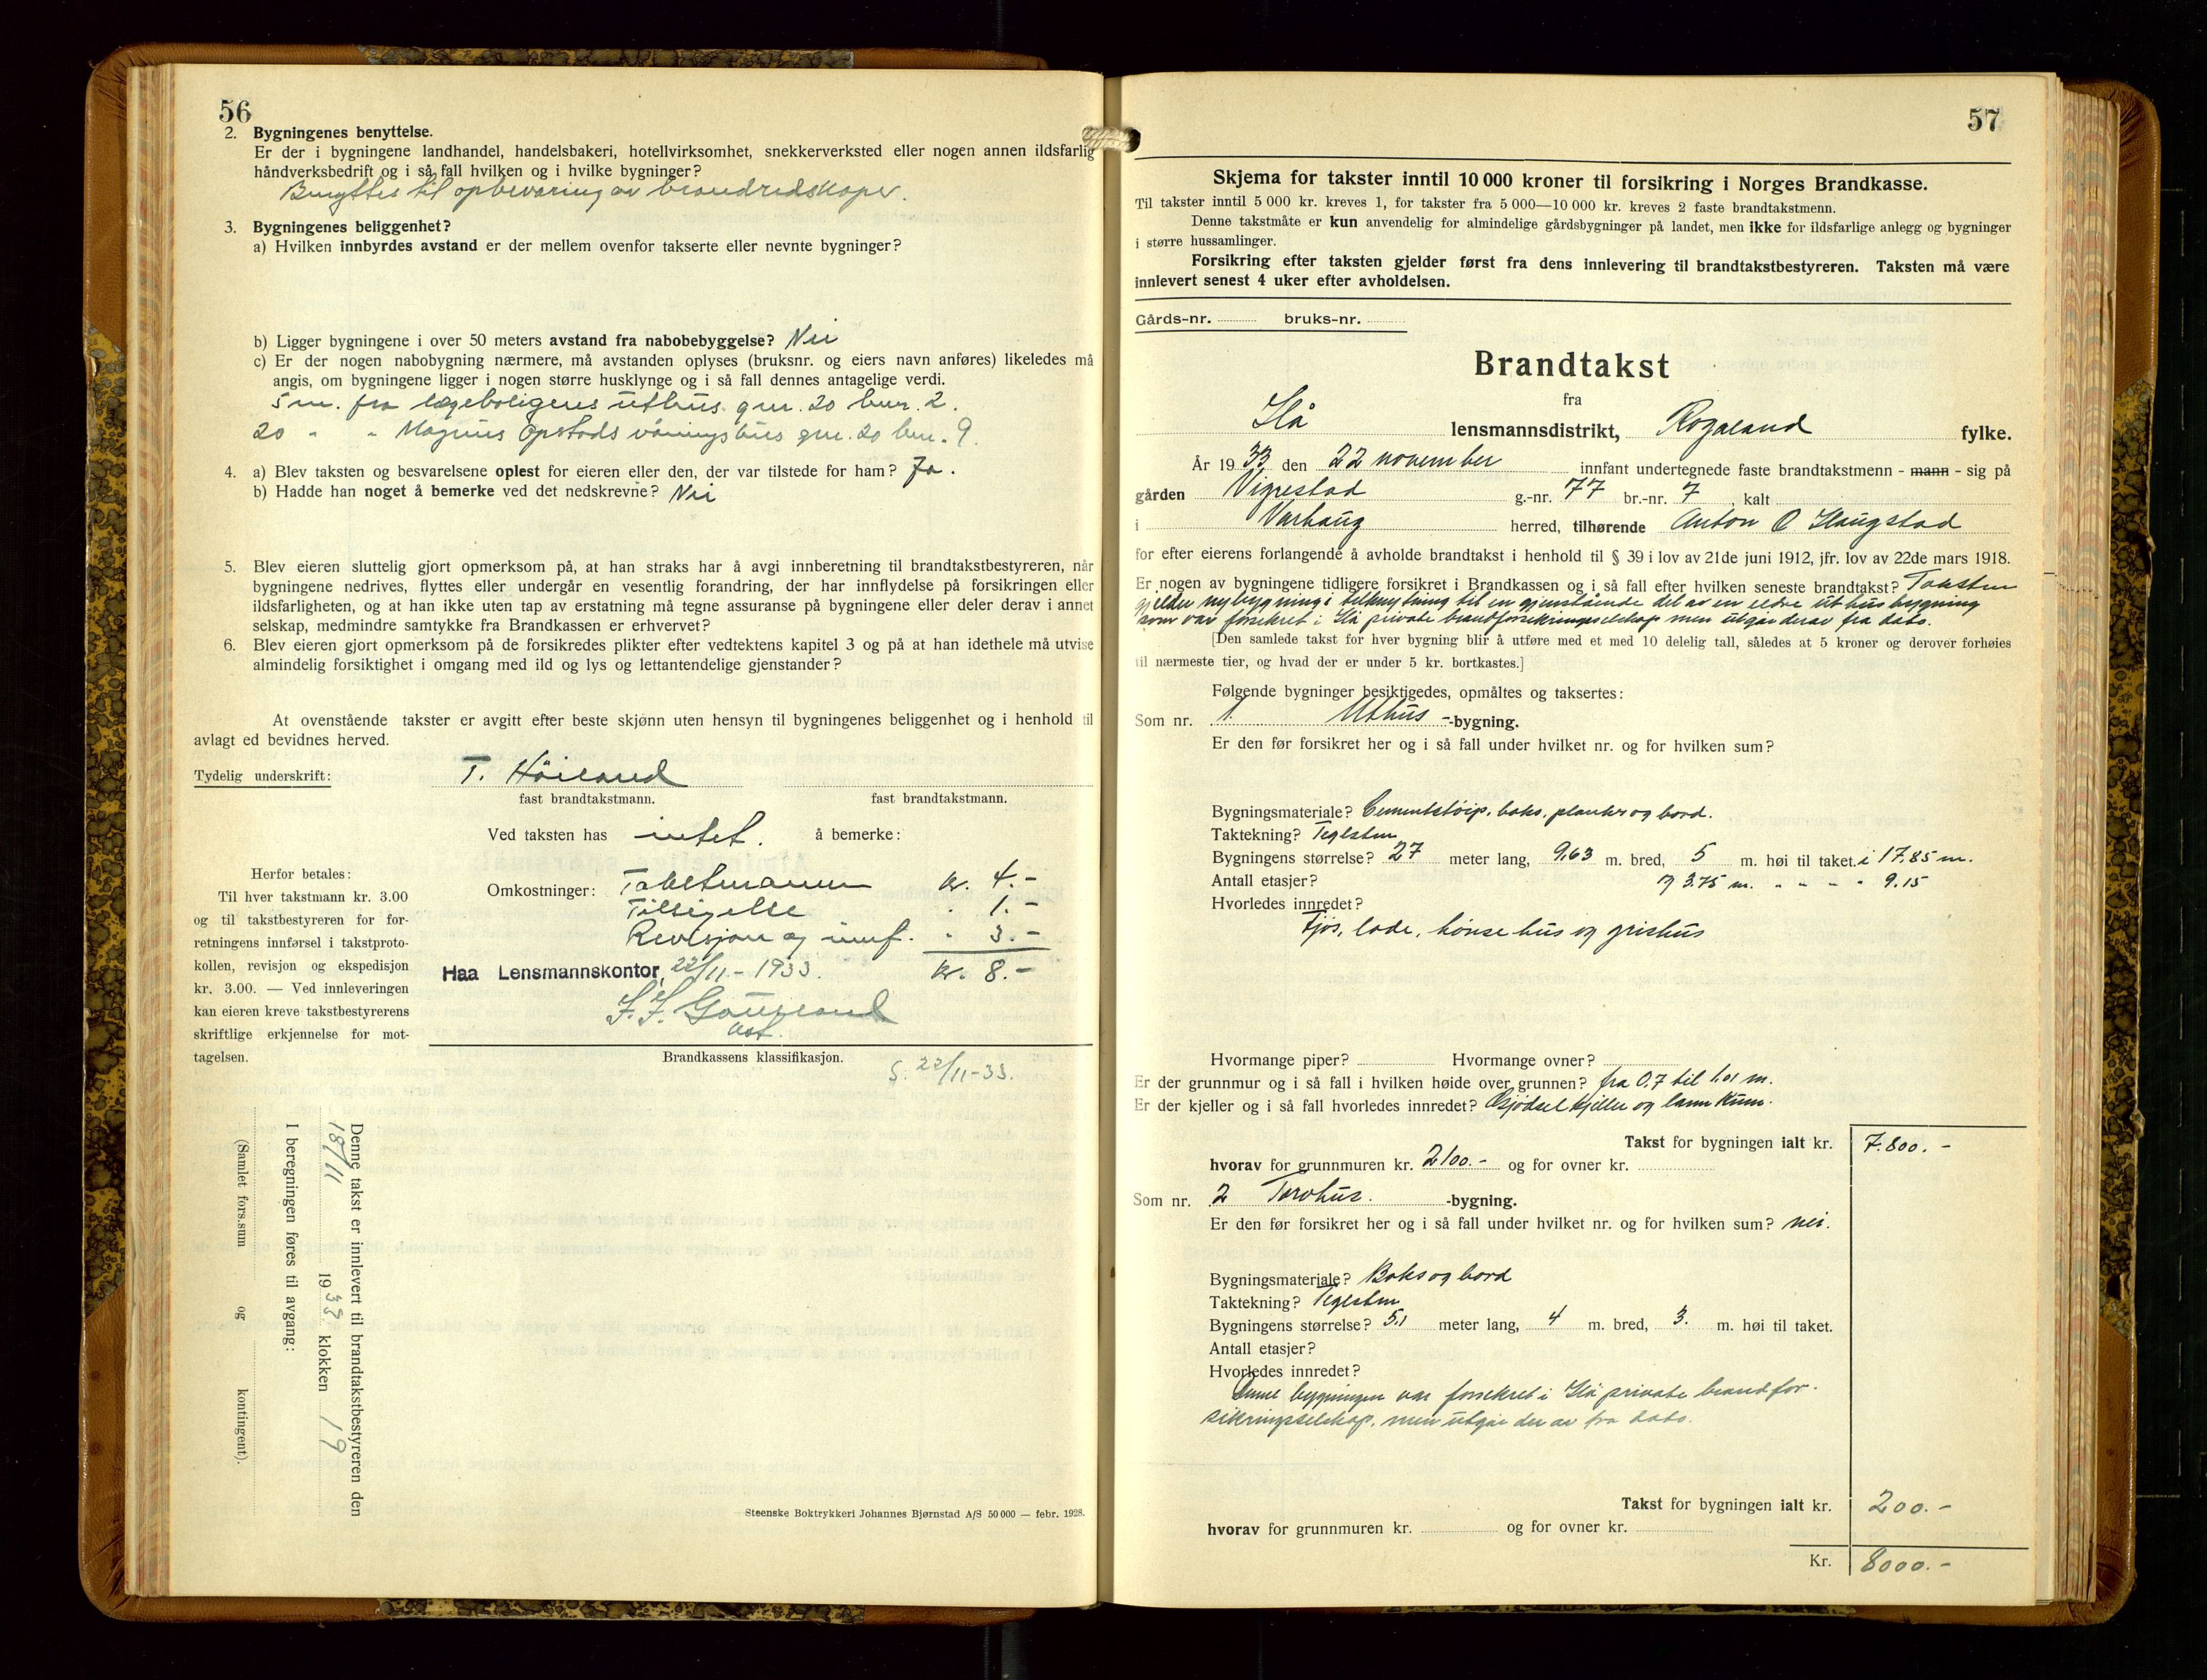 56
2. Bygningenes benyttelse.
Er der i bygningene landhandel, handelsbakeri, hotellvirksomhet, snekkerverksted eller nogen annen ildsfarlig
håndverksbedrift og i så fall hvilken og i hvilke bygninger?
Benyttes til opbevaring av brandredskaper.
3. Bygningenes beliggenhet?
a) Hvilken innbyrdes avstand er der mellem ovenfor takserte eller nevnte bygninger?
b) Ligger bygningene i over 50 meters avstand fra nabobebyggelse? Nei
c) Er der nogen nabobygning nærmere, må avstanden oplyses (bruksnr. og eiers navn anføres) likeledes må
angis, om bygningene ligger i nogen større husklynge og i så fall dennes antagelige verdi.
5 m. fra lægeboligens uthus gnr. 20 bnr. 2.
20 " " Magnus Opstads våningshus gnr. 20 bnr. 9.
4. a) Blev taksten og besvarelsene oplest for eieren eller den, der var tilstede for ham? Ja.
b) Hadde han noget å bemerke ved det nedskrevne? Nei
5. Blev eieren sluttelig gjort opmerksom på, at han straks har å avgi innberetning til brandtakstbestyreren, når
bygningene nedrives, flyttes eller undergår en vesentlig forandring, der har innflydelse på forsikringen eller
ildsfarligheten, og at han ikke uten tap av erstatning må tegne assuranse på bygningene eller deler derav i annet
selskap, medmindre samtykke fra Brandkassen er erhvervet?
6. Blev eieren gjort opmerksom på de forsikredes plikter efter vedtektens kapitel 3 og på at han idethele må utvise
almindelig forsiktighet i omgang med ild og lys og lettantendelige gjenstander?
At ovenstående takster er avgitt efter beste skjønn uten hensyn til bygningenes beliggenhet og i henhold til
avlagt ed bevidnes herved.
Tydelig underskrift: T. Höiland
fast brandtakstmann. fast brandtakstmann.
Ved taksten has intet. å bemerke:
Herfor betales:
Til hver takstmann kr. 3.00
og til takstbestyreren for for-
retningens innførsel i takstproto-
kollen, revisjon og ekspedisjon
kr. 3.00. — Ved innleveringen
kan eieren kreve takstbestyrerens
skriftlige erkjennelse for mot-
tagelsen.
Omkostninger: Takstmannen kr. 4.-
Tilsigelse " 1.-
Revisjon og innf. " 3.-
Haa Lensmannskontor, 22/11.-1933. kr. 8.-
Ass.
Brandkassens klassifikasjon.
S. 22/11-33.
Denne takst er innlevert til brandtakstbestyreren den
18/11 1933 klokken 19
I beregningen føres til avgang:
(Samlet fors.sum og kontingent).
Steenske Boktrykkeri Johannes Bjørnstad A/S 50 000 — febr. 1928.
57
Skjema for takster inntil 10 000 kroner til forsikring i Norges Brandkasse.
Til takster inntil 5 000 kr. kreves 1, for takster fra 5 000—10 000 kr. kreves 2 faste brandtakstmenn.
Denne takstmåte er kun anvendelig for almindelige gårdsbygninger på landet, men ikke for ildsfarlige anlegg og bygninger
i større hussamlinger.
Forsikring efter taksten gjelder først fra dens innlevering til brandtakstbestyreren. Taksten må være
innlevert senest 4 uker efter avholdelsen.
Gårds-nr. bruks-nr.
Brandtakst
fra
Hå lensmannsdistrikt, Rogaland fylke.
År 1933 den 22 november innfant undertegnede faste brandtakstmenn - mann - sig på
gården Vigrestad g.-nr. 77 br.-nr. 7, kalt
i Varhaug herred, tilhørende Anton O Haugstad
for efter eierens forlangende å avholde brandtakst i henhold til § 39 i lov av 21de juni 1912, jfr. lov av 22de mars 1918.
Er nogen av bygningene tidligere forsikret i Brandkassen og i så fall efter hvilken seneste brandtakst? Taksten
gjelder nybygning i tilknytning til en gjenstående del av en eldre uthusbygning
som var forsikret i Hå private brandforsikringsselskap men utgår derav fra dato.
[Den samlede takst for hver bygning blir å utføre med et med 10 delelig tall, således at 5 kroner og derover forhøies
til nærmeste tier, og hvad der er under 5 kr. bortkastes.]
Følgende bygninger besiktigedes, opmåltes og taksertes:
Som nr. 1. Uthus -bygning.
Er den før forsikret her og i så fall under hvilket nr. og for hvilken sum?
Bygningsmateriale? Cementstöip, baks, planker og bord.
Taktekning? Teglsten
Bygningens størrelse? 27 meter lang, 9,63 m. bred, 5 m. høi til taket. i 17,85 m.
Antall etasjer? og 3.75 m. " " " " 9.15
Hvorledes innredet?
Fjös, lade, hönsehus og grishus
Hvormange piper? Hvormange ovner?
Er der grunnmur og i så fall i hvilken høide over grunnen? fra 0,7 til 1,01 m.
Er der kjeller og i så fall hvorledes innredet? Gjödselkjeller og lann kum.
Takst for bygningen ialt kr. 7.800.-
hvorav for grunnmuren kr. 2100.- og for ovner kr.
Som nr. 2 Torvhus. -bygning.
Er den før forsikret her og i så fall under hvilket nr. og for hvilken sum? nei.
Bygningsmateriale? Baks og bord
Taktekning? Teglsten
Bygningens størrelse? 5,1 meter lang, 4 m. bred, 3. m. høi til taket.
Antall etasjer?
Hvorledes innredet?
Denne bygningen var forsikret i Hå private brandfor-
sikringsselskap, men utgår der av fra dato.
Takst for bygningen ialt kr. 200.-
hvorav for grunnmuren kr. og for ovner kr.
Kr. 8000.-